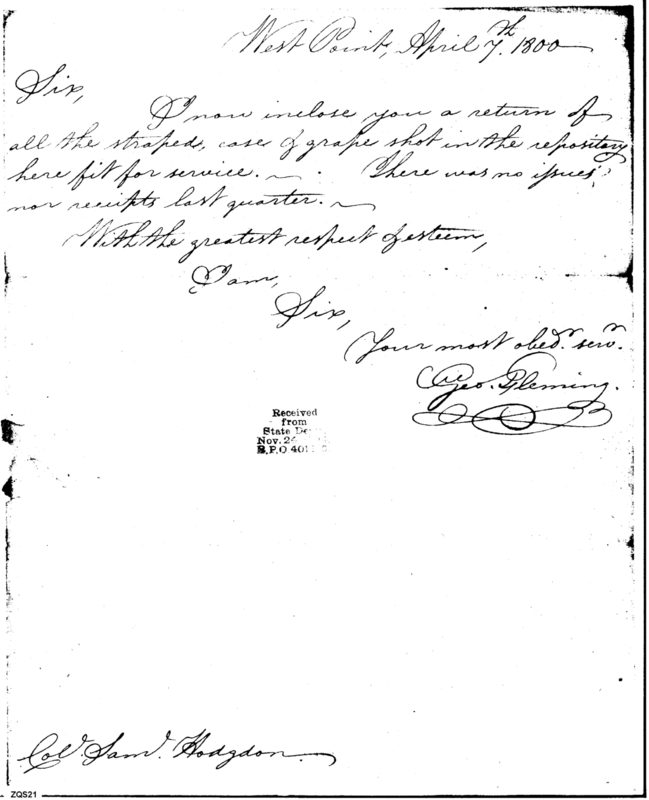 West Point, April 7th. 1800
Sir,
I now inclose you a return of
all the straped, case & grape shot in the repository
here fit for service. There was no issues
nor receipts last quarter.
With the greatest respect & esteem,
I am,
Sir,
Your most obedr. serv.
Geo. Fleming.
Received
from
State De
Nov. 24
B.P.O 401
Colo. Saml. Hodgdon
ZQS21